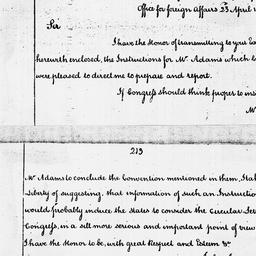 Office for foreign Affairs 23 April
Sir
I have the Honor of transmitting to you
herewith enclosed, the Instructions for Mr Adams which
were pleased to direct me to prepare and report.
If Congress should think proper to
213
Mr Adams to conclude the Convention mentioned in them,
Liberty of suggesting, that information of such an
would probably induce the States to consider the Circular
Congress, in a still more serious and important point of view
I have the Honor to be, with great Respect and Esteem &c